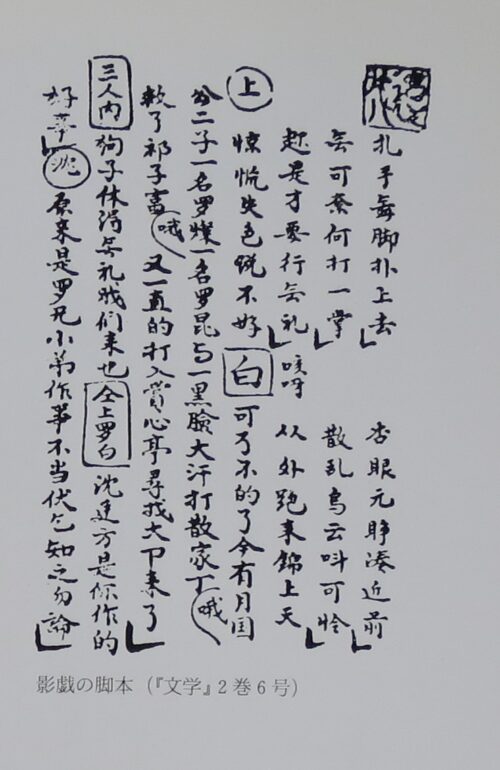 扎手舞脚扑上去 杏眼元睁凑近前
无可奈何打一掌 散乱乌云叫可怜
赶是才要行无礼 从外跑来锦上天
上 惊慌失色说不好 白 咳呀 可了不的了今有月国
公二子一名罗燦一名罗昆与一黑臉大汗打散家丁 哦
救了祁子富 哦 又一直的打入賞心亭尋找大卩来了
三人内 狗子休得无礼我们来也 仝上罗白 沈廷方是你作的
好事 沈 原来是罗兄小弟作事不当伏乞知之勿論
影戯の脚本（『文学』2巻6号）